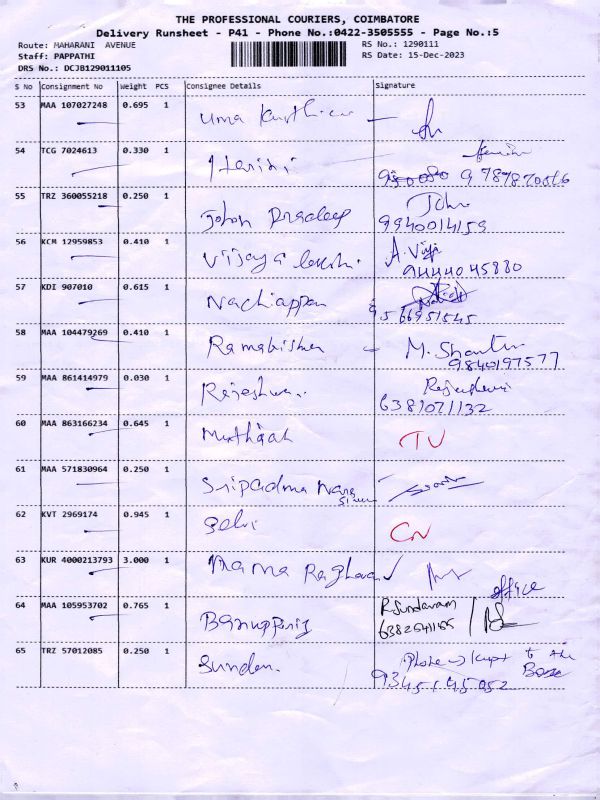 THE PROFESSIONAL COURIERS, COIMBATORE
Delivery Runsheet - P41 - Phone No.:0422-3505555 - Page No.:5
Route: MAHARANI AVENUE RS No.: 1290111
Staff: PAPPATHI RS Date: 15-Dec-2023
DRS No.: DCJB129011105
S No Consignment No Weight PCS Consignee Details Signature
53 MAA 107027248 0.695 1 Uma
54 TCG 7024613 0.330 1 Harini
9787870566
55 TRZ 360055218 0.250 1 John Pradeep John
9940014159
56 KCM 12959853 0.410 1 Vijaya A. Viji
9444045880
57 KDI 907010 0.615 1 Nachiappan
9566951545
58 MAA 104479269 0.410 1 M. Shanthi
9840197577
59 MAA 861414979 0.030 1
6381071132
60 MAA 863166234 0.645 1
61 MAA 571830964 0.250 1 Sripadma
62 KVT 2969174 0.945 1 Selvi
63 KUR 4000213793 3.000 1 Raghavan
office
64 MAA 105953702 0.765 1 R. Sundaram
65 TRZ 57012085 0.250 1 Sundar.
9345145052